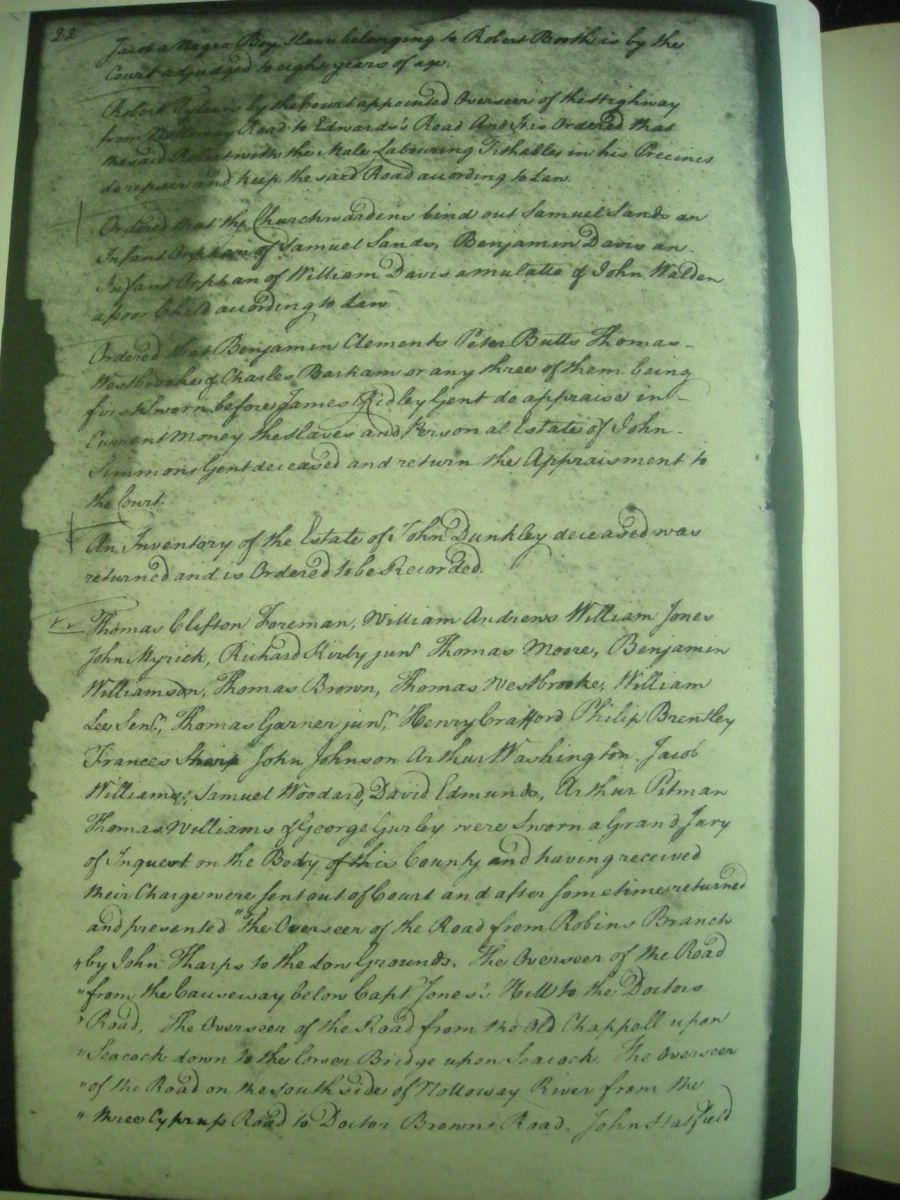 22
a Negro Boy Slave belonging to Robert Booth is by the
Court adjudged to eight years of age.
Robert is by the Court appointed Overseer of the Highway
from Nottoway Road to Edwards's Road And it is Ordered that
the said Robert with the Male Labouring Tithables in his Precincts
do repair and keep the said Road according to Law.
Ordered that the Churchwardens bind out Samuel Sands an
Infant Orphan of Samuel Sands, Benjamin Davis an
Infant Orphan of William Davis a mulatto & John Walden
a poor Child according to Law
Ordered that Benjamin Clements Peter Butts Thomas
Westbrooke & Charles Barham or any three of them being
first Sworn before James Ridley Gent do appraise in
Current Money the Slaves and Personal Estate of John
Simmons Gent deceased and return the Appraisment to
the Court.
An Inventory of the Estate of John Dunkley deceased was
returned and is Ordered to be Recorded.
Thomas Clifton Foreman, William Andrews William Jones
John Myrick, Richard Kirby junr Thomas Moore, Benjamin
Williamson, Thomas Brown, Thomas Westbrooke, William
Lee Senr, Thomas Garner junr, Henry Crafford Philip Brentley
Frances Sharp John Johnson Arthur Washington Jacob
Williams, Samuel Woodard, David Edmunds, Arthur Pitman
Thomas Williams & George Gurley were Sworn a Grand Jury
of Inquest on the Body of this County and having received
their Charge were sent out of Court and after sometime returned
and presented "the Overseer of the Road from Robins Branch
"by John Tharps to the Low Grounds. The Overseer of the Road
"from the Causeway below Capt Jones's Mill to the Doctors
"Road, The Overseer of the Road from the Old Chappell upon
"Seacock down to the lower Bridge upon Seacock. The Overseer
"of the Road on the South side of Nottoway River from the
"three Cypruss Road to Doctor Browns Road. John Hatfield